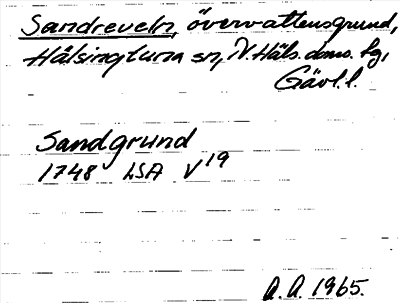 Sandreveln, övervattensgrund,
Hälsingtuna sn, N. Häls. doms. lg,
Gävl. l.
Sandgrund
1748 LSA V19
A. A. 1965.